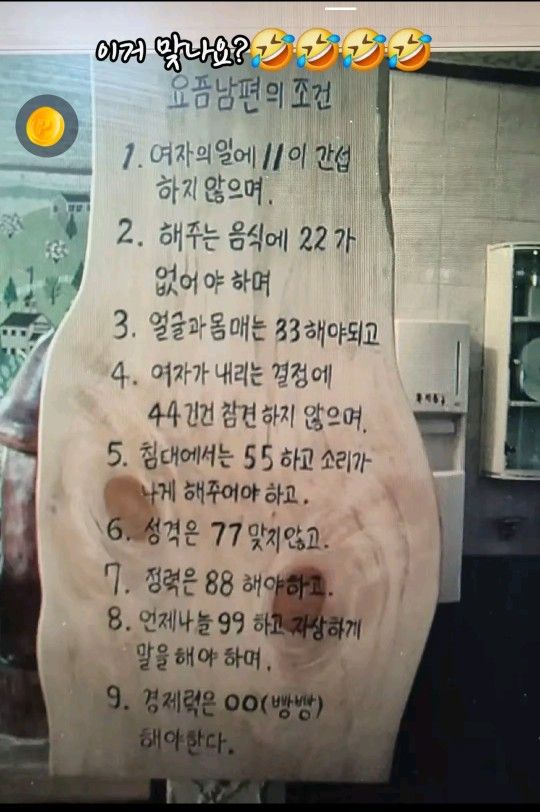 이거 맞나요?🤣🤣🤣🤣
요즘남편의 조건
1. 여자의일에 11이 간섭
하지 않으며.
2. 해주는 음식에 22가
없어야 하며
3. 얼굴과몸매는 33해야되고
4. 여자가 내리는 결정에
44건건 참견하지 않으며.
5. 침대에서는 55하고 소리가
나게 해주어야 하고.
6. 성격은 77맞지않고.
7. 정력은 88해야하고.
8. 언제나늘 99하고 자상하게
말을해야하며.
9. 경제력은 00(빵빵)
해야한다.